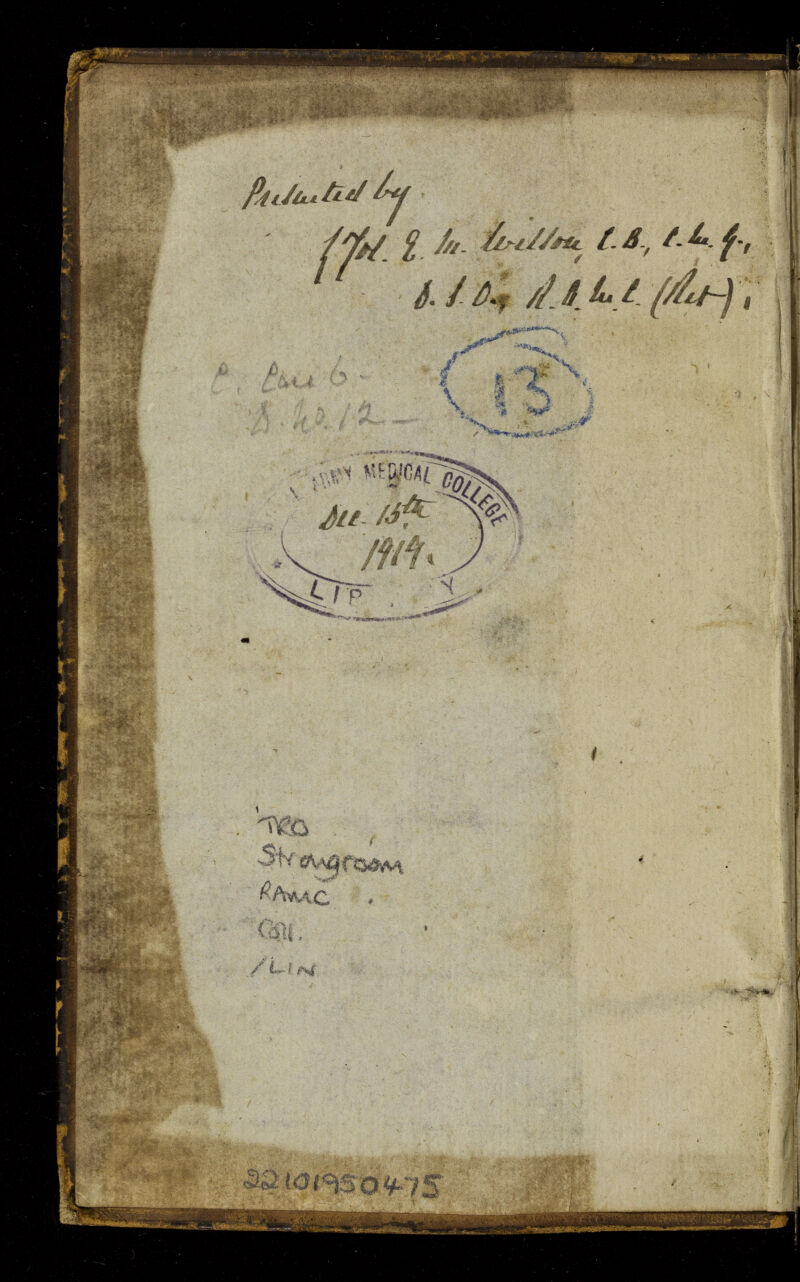 Presented by
Col. E. M. Wilson, C.B., C.M.G.,
D.S.O., R.A.M.C. (Ret),
C. Cau 6 -
S. No. 12 -
13
ARMY MEDICAL COLLEGE
Dec. 15th
1919.
LI Y
TRO
Strongroom
RAMC.
Coll.
/LIN
22101950475